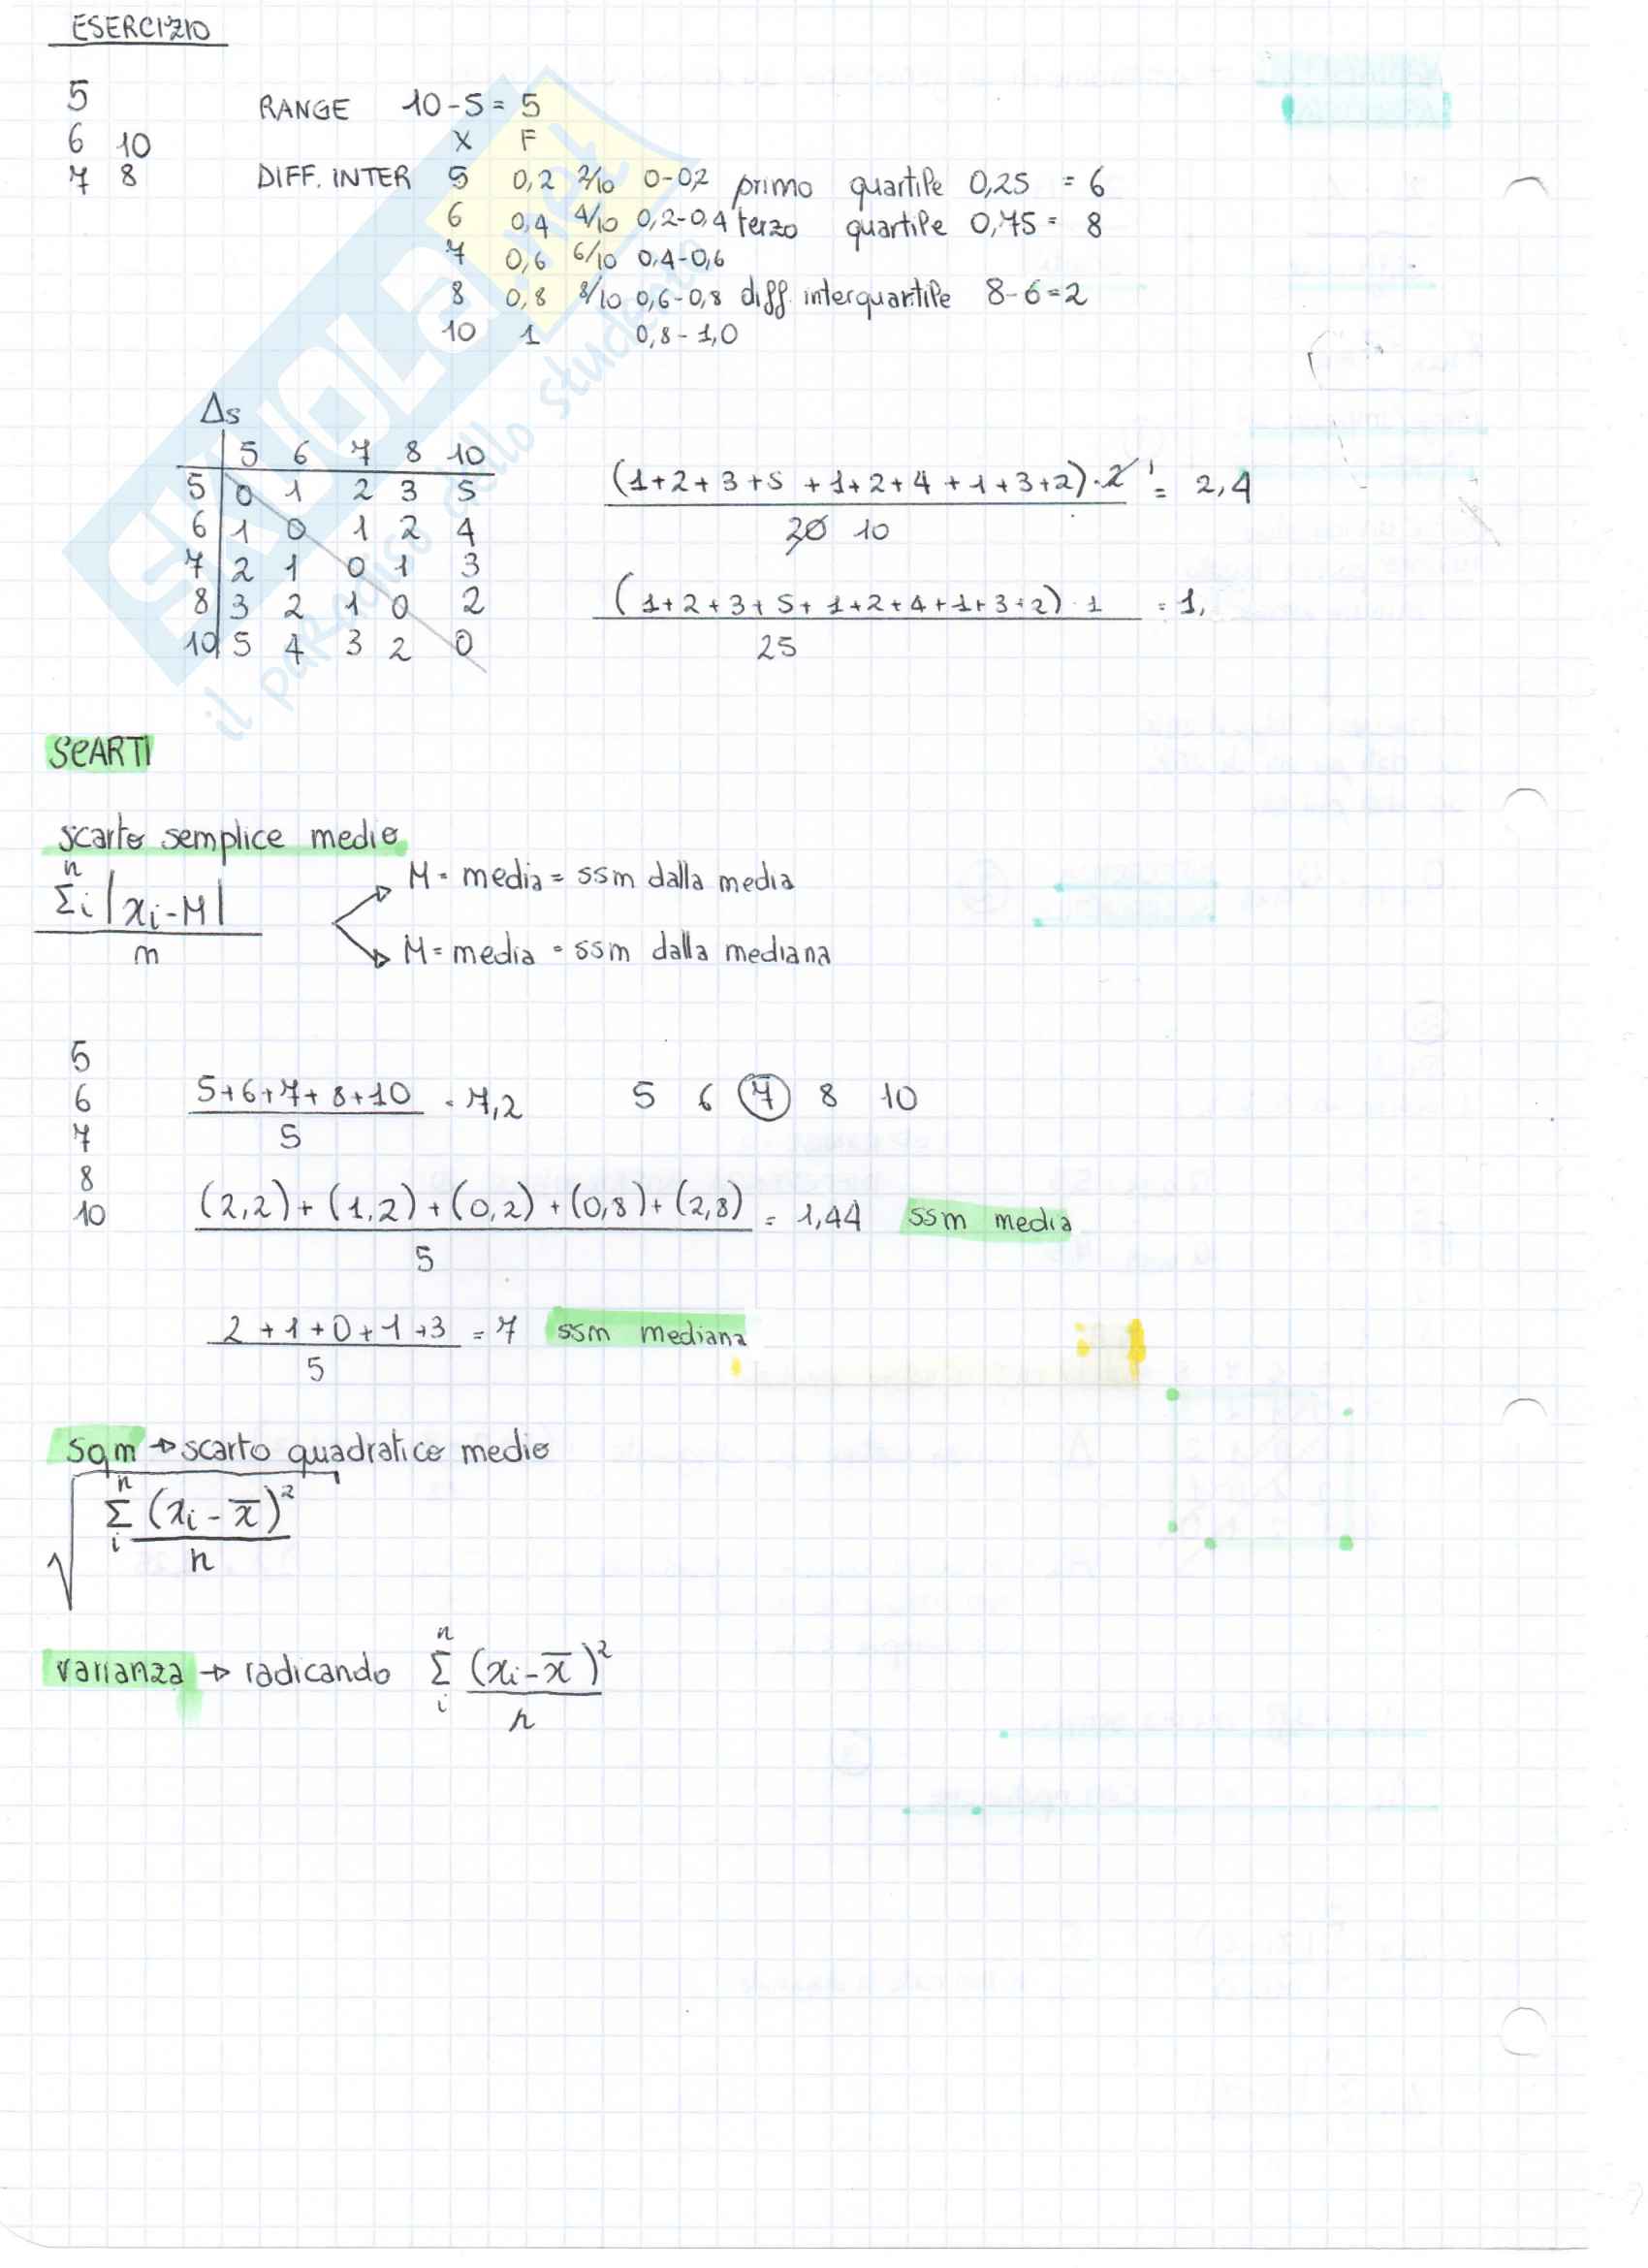 ESERCIZIO
5
6 10
7 8
RANGE 10-5= 5
X F
DIFF. INTER 5 0,2 2/10 0-0,2 primo quartile 0,25 = 6
6 0,4 4/10 0,2-0,4 terzo quartile 0,75 = 8
7 0,6 6/10 0,4-0,6
8 0,8 8/10 0,6-0,8 diff. interquartile 8-6=2
10 1 0,8-1,0
SKUOLA.net
il paradiso dello studente
Δs
5 6 7 8 10
5 0 1 2 3 5
6 1 0 1 2 4
7 2 1 0 1 3
8 3 2 1 0 2
10 5 4 3 2 0
(1+2+3+5+1+2+4+1+3+2)·2 1 = 2,4
20 10
(1+2+3+5+1+2+4+1+3+2)·1 = 1,
25
SCARTI
scarto semplice medio
n
Σi |xi-M|
n
M = media = ssm dalla media
M = media = ssm dalla mediana
5
6
7
8
10
5+6+7+8+10 = 7,2
5
5 6 7 8 10
(2,2)+(1,2)+(0,2)+(0,8)+(2,8) = 1,44 ssm media
5
2+1+0+1+3 = 7 ssm mediana
5
sqm → scarto quadratico medio
n
√ Σ (xi - x̄)²
i n
varianza → radicando
n
Σ (xi - x̄)²
i n